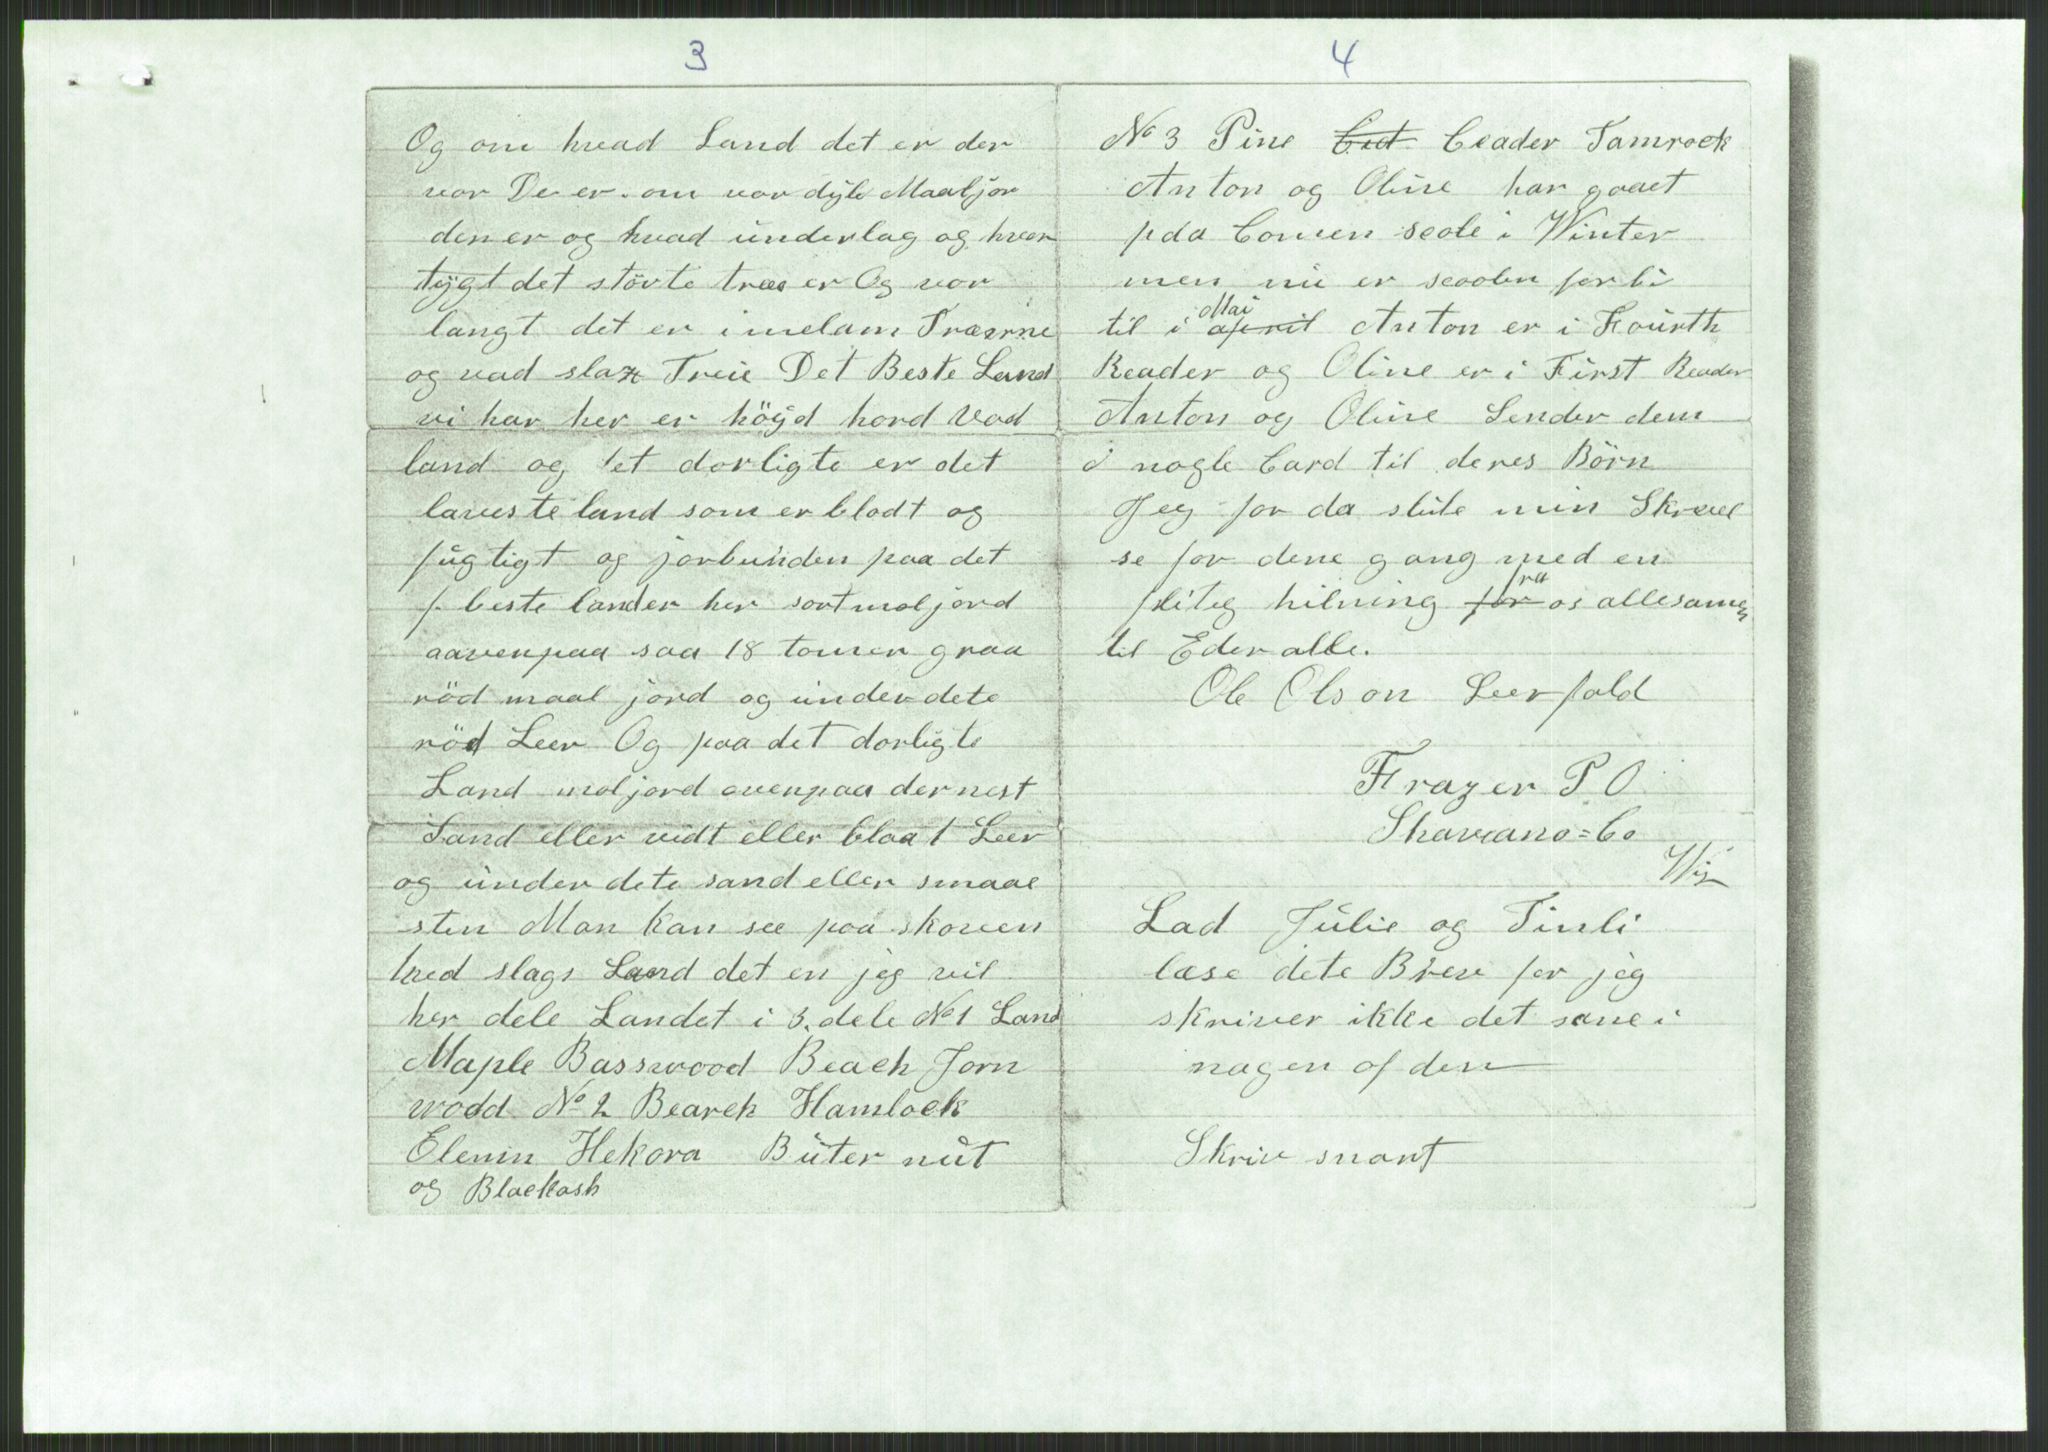 3
Og om hvad Land det er der
vor De er. om vor dyb Maaljor
den er og hvad underlag og hvor
tygt det störte træe er Og vor
langt det er imelam Træerne
og vad slax Treie Det Beste Land
vi har her er höyd hord Vad
land og det dorligte er det
laveste land som er blodt og
fugtigt og jorbunden paa det
f beste lander her sortmoljord
aavenpaa saa 18 tomer graa
röd maal jord og under dete
röd Leer Og paa det dorligte
Land moljord ovenpaa dernest
Sand eller vidt eller blaat Leer
og under dete sand eller smaae
sten Man kan see paa skoven
hved slags Land det en jeg vil
her dele Landet i 3. dele No 1 Land
Maple Basswood Beach Jorn
wodd No 2 Bearch Hamlock
Elemin Hekora Buter nut
og Blackash
4
No 3 Pine Ced Ceader Tamrock
Anton og Oline har gaaet
paa Comen scole i Winter
men nu er scoolen forbi
Mai
til i april Anton er i Fourth
Reader og Oline er i First Reader
Anton og Oline Sender dem
nogle Card til deres Börn
Jeg for da slute min Skrivel
se for dene gang med en
fra
flitig hilning for os allesamen
til Eder alle.
Ole Olson Leerfald
Frazer P O
Shawano=Co
Wis
Lad Julie og Tinli
læse dete Brev for jeg
skriver ikke det same i
nagen of den
Skriv snart